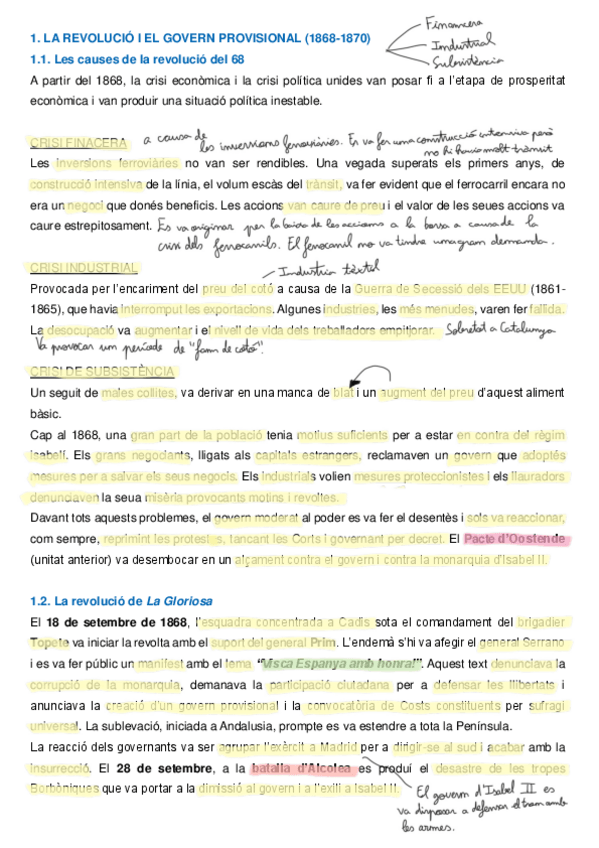 1. LA REVOLUCIÓ I EL GOVERN PROVISIONAL (1868-1870)
Financera
Industrial
Subsistència
1.1. Les causes de la revolució del 68
A partir del 1868, la crisi econòmica i la crisi política unides van posar fi a l'etapa de prosperitat
econòmica i van produir una situació política inestable.
CRISI FINACERA
a causa de
les inversions ferroviàries. Es va fer una construcció intensiva però
no hi havia molt trànsit
Les inversions ferroviàries no van ser rendibles. Una vegada superats els primers anys, de
construcció intensiva de la línia, el volum escàs del trànsit, va fer evident que el ferrocarril encara no
era un negoci que donés beneficis. Les accions van caure de preu i el valor de les seues accions va
caure estrepitosament.
Es va originar per la baixa de les accions a la borsa a causa de la
crisi dels ferrocarrils. El ferrocarril no va tindre una gran demanda.
CRISI INDUSTRIAL
Industria tèxtil
Provocada per l'encariment del preu del cotó a causa de la Guerra de Secessió dels EEUU (1861-
1865), que havia interromput les exportacions. Algunes industries, les més menudes, varen fer fallida.
La desocupació va augmentar i el nivell de vida dels treballadors empitjorar.
Sobretot a Catalunya
Va provocar un període de "fam de cotó".
CRISI DE SUBSISTÈNCIA
Un seguit de males collites, va derivar en una manca de blat i un augment del preu d'aquest aliment
bàsic.
Cap al 1868, una gran part de la població tenia motius suficients per a estar en contra del règim
isabelí. Els grans negociants, lligats als capitals estrangers, reclamaven un govern que adoptés
mesures per a salvar els seus negocis. Els industrials volien mesures proteccionistes i els llauradors
denunciaven la seua misèria provocants motins i revoltes.
Davant tots aquests problemes, el govern moderat al poder es va fer el desentès i sols va reaccionar,
com sempre, reprimint les protestes, tancant les Corts i governant per decret. El Pacte d'Oostende
(unitat anterior) va desembocar en un alçament contra el govern i contra la monarquia d'Isabel II.
1.2. La revolució de La Gloriosa
El 18 de setembre de 1868, l'esquadra concentrada a Cadis sota el comandament del brigadier
Topete va iniciar la revolta amb el suport del general Prim. L'endemà s'hi va afegir el general Serrano
i es va fer públic un manifest amb el lema "Visca Espanya amb honra!". Aquest text denunciava la
corrupció de la monarquia, demanava la participació ciutadana per a defensar les llibertats i
anunciava la creació d'un govern provisional i la convocatòria de Costs constituents per sufragi
universal. La sublevació, iniciada a Andalusia, prompte es va estendre a tota la Península.
La reacció dels governants va ser agrupar l'exèrcit a Madrid per a dirigir-se al sud i acabar amb la
insurrecció. El 28 de setembre, a la batalla d'Alcolea es produí el desastre de les tropes
Borbòniques que va portar a la dimissió al govern i a l'exili a Isabel II.
El govern d'Isabel II es
va disposar a defensar el tram amb
les armes.